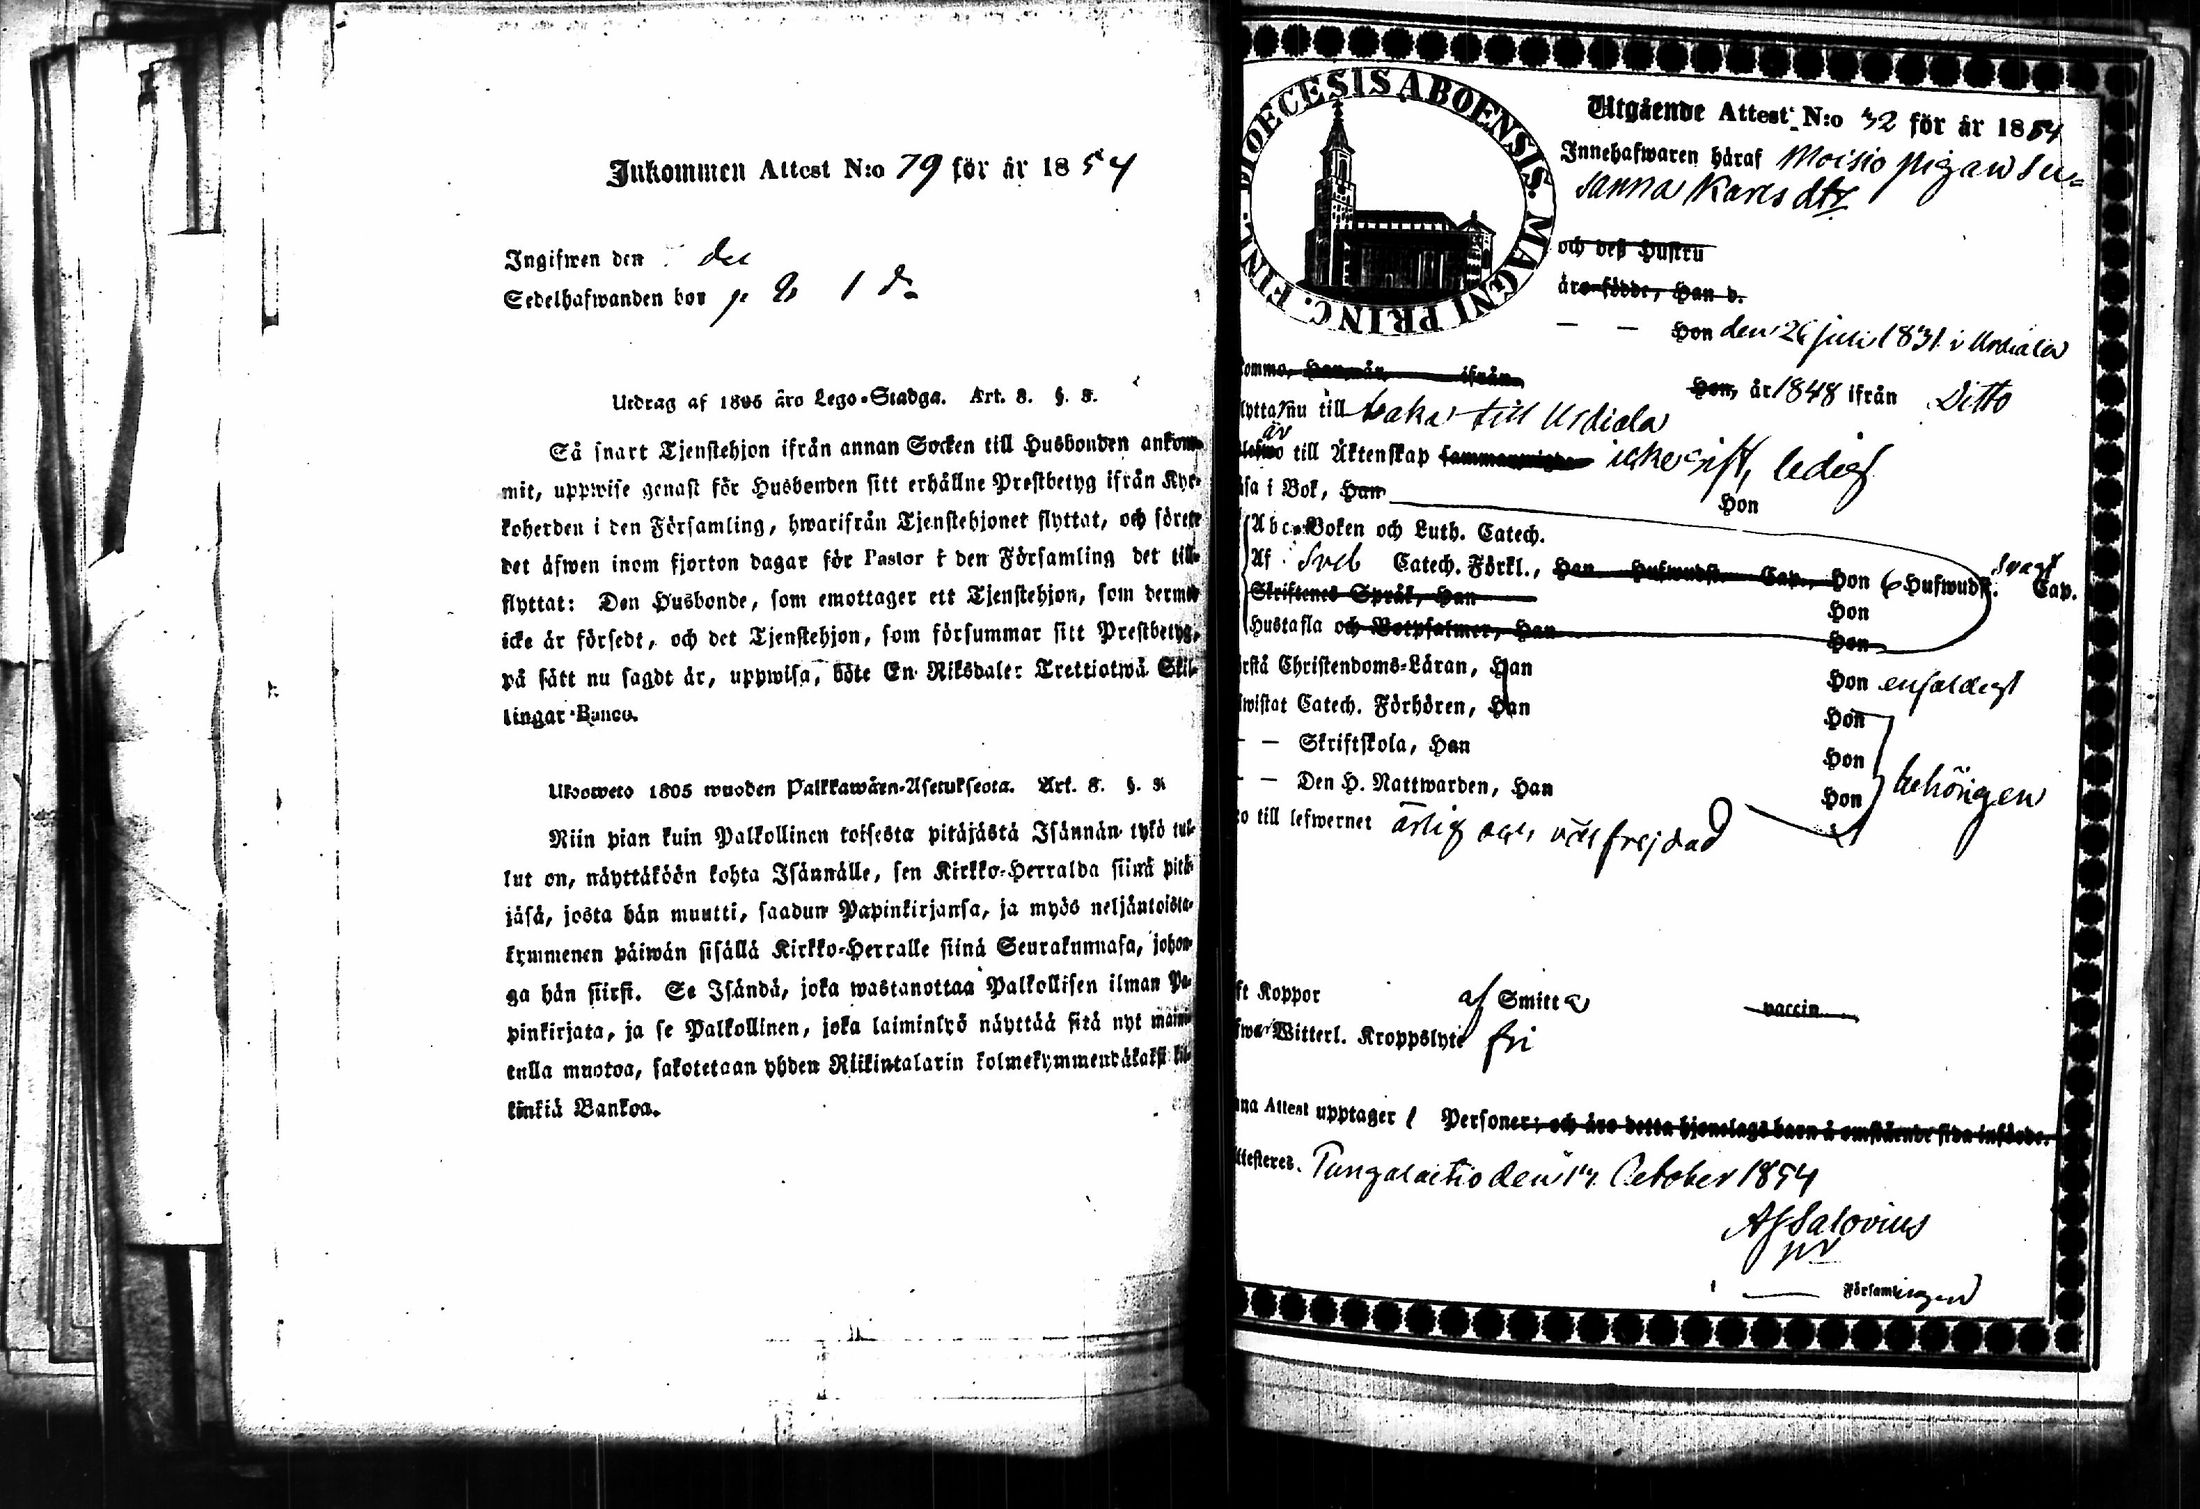 Inkommen Attest N:o 79 för år 1854
Ingifwen den
Sedelhafwanden bor
Utdrag af 1805 års Lego-Stadga. Art. 8. §. 8.
Så snart Tjenstehjon ifrån annan Socken till Husbonden ankom-
mit, uppwise genast för Husbonden sitt erhållne Prestbetyg ifrån Kyr-
koherden i den Församling, hwarifrån Tjenstehjonet flyttat, och förete
det äfwen inom fjorton dagar för Pastor i den Församling det till-
flyttat: Den Husbonde, som emottager ett Tjenstehjon, som dermed
icke är försedt, och det Tjenstehjon, som försummar sitt Prestbetyg,
på sätt nu sagdt är, uppwisa, böte En Riksdaler Trettiotwå Skil-
lingar Banco.
Ulosweto 1805 wuoden Palkkawäen-Asetuksesta. Art. 8. §. 8.
Niin pian kuin Palkollinen toisesta pitäjästä Isännän tykö tul-
lut on, näyttäköön kohta Isännälle, sen Kirkko-Herralda siinä pitä-
jäsä, josta hän muutti, saadun Papinkirjansa, ja myös neljäntoista-
kymmenen päiwän sisällä Kirkko-Herralle siinä Seurakunnasa, johon-
ga hän siirsi. Se Isändä, joka wastanottaa Palkollisen ilman Pa-
pinkirjata, ja se Palkollinen, joka laiminlyö näyttää sitä nyt maini-
tulla muotoa, sakotetaan yhden Riikintalarin kolmekymmendäkaksi kil-
linkiä Bankoa.
DIOECESIS ABOENSIS. MAGNI PRINC. FINL.
Utgående Attest N:o 32 för år 1854
Innehafwaren häraf Moisio pigan Su-
sanna Karlsdtr
och deß Hustru
äro födde, Han d.
— — Hon den 26 juli 1831 i Urdiala
komma, Han, år ifrån Hon, år 1848 ifrån Ditto
flytta nu till baka till Urdiala
är
till Äktenskap icke gift, ledig
läsa i Bok, Han Hon
Abc-Boken och Luth. Catech.
Af Sveb Catech. Förkl., Han Hufwudst. Cap., Hon 6 Hufwudst. svagt Cap.
Skriftenes Språk, Han Hon
Hustafla och Botpsalmer, Han Hon
förstå Christendoms-Läran, Han Hon enfaldigt
biwistat Catech. Förhören, Han Hon
— — Skriftskola, Han Hon
— — Den H. Nattwarden, Han Hon behörigen
till lefwernet ärlig och väl frejdad
haft Koppor af Smitta vaccin
Witterl. Kroppslyte fri
Denna Attest upptager 1 Personer; och äro detta hjonelags barn å omstående sida införde.
Attesteres. Pungalaitio den 14 October 1854
AJ Salovius
Församlingen